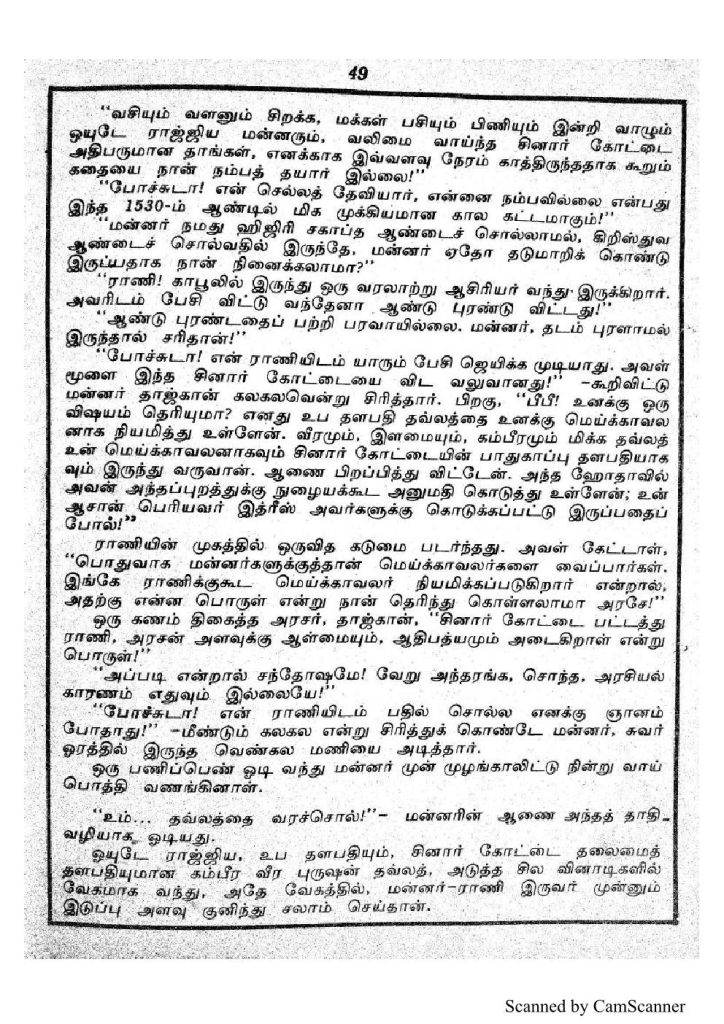 49
“வசியும் வளனும் சிறக்க, மக்கள் பசியும் பிணியும் இன்றி வாழும்
ஒயுடே ராஜ்ஜிய மன்னரும், வலிமை வாய்ந்த சினார் கோட்டை
அதிபருமான தாங்கள், எனக்காக இவ்வளவு நேரம் காத்திருந்ததாக கூறும்
கதையை நான் நம்பத் தயார் இல்லை!”
“போச்சுடா! என் செல்லத் தேவியார், என்னை நம்பவில்லை என்பது
இந்த 1530-ம் ஆண்டில் மிக முக்கியமான கால கட்டமாகும்!”
“மன்னர் நமது ஹிஜிரி சகாப்த ஆண்டைச் சொல்லாமல், கிறிஸ்துவ
ஆண்டைச் சொல்வதில் இருந்தே, மன்னர் ஏதோ தடுமாறிக் கொண்டு
இருப்பதாக நான் நினைக்கலாமா?”
“ராணி! காபூலில் இருந்து ஒரு வரலாற்று ஆசிரியர் வந்து இருக்கிறார்.
அவரிடம் பேசி விட்டு வந்தேனா ஆண்டு புரண்டு விட்டது!”
“ஆண்டு புரண்டதைப் பற்றி பரவாயில்லை. மன்னர், தடம் புரளாமல்
இருந்தால் சரிதான்!”
“போச்சுடா! என் ராணியிடம் யாரும் பேசி ஜெயிக்க முடியாது. அவள்
மூளை இந்த சினார் கோட்டையை விட வலுவானது!” –கூறிவிட்டு
மன்னர் தாஜ்கான் கலகலவென்று சிரித்தார். பிறகு, “பீபீ! உனக்கு ஒரு
விஷயம் தெரியுமா? எனது உப தளபதி தவ்லத்தை உனக்கு மெய்க்காவல
னாக நியமித்து உள்ளேன். வீரமும், இளமையும், கம்பீரமும் மிக்க தவ்லத்
உன் மெய்க்காவலனாகவும் சினார் கோட்டையின் பாதுகாப்பு தளபதியாக
வும் இருந்து வருவான். ஆணை பிறப்பித்து விட்டேன். அந்த ஹோதாவில்
அவன் அந்தப்புறத்துக்கு நுழையக்கூட அனுமதி கொடுத்து உள்ளேன்; உன்
ஆசான் பெரியவர் இத்ரீஸ் அவர்களுக்கு கொடுக்கப்பட்டு இருப்பதைப்
போல்!”
ராணியின் முகத்தில் ஒருவித கடுமை படர்ந்தது. அவள் கேட்டாள்,
“பொதுவாக மன்னர்களுக்குத்தான் மெய்க்காவலர்களை வைப்பார்கள்.
இங்கே ராணிக்குகூட மெய்க்காவலர் நியமிக்கப்படுகிறார் என்றால்,
அதற்கு என்ன பொருள் என்று நான் தெரிந்து கொள்ளலாமா அரசே!”
ஒரு கணம் திகைத்த அரசர், தாஜ்கான், “சினார் கோட்டை பட்டத்து
ராணி, அரசன் அளவுக்கு ஆள்மையும், ஆதிபத்யமும் அடைகிறாள் என்று
பொருள்!”
“அப்படி என்றால் சந்தோஷமே! வேறு அந்தரங்க, சொந்த, அரசியல்
காரணம் எதுவும் இல்லையே!”
“போச்சுடா! என் ராணியிடம் பதில் சொல்ல எனக்கு ஞானம்
போதாது!” –மீண்டும் கலகல என்று சிரித்துக் கொண்டே மன்னர், சுவர்
ஓரத்தில் இருந்த வெண்கல மணியை அடித்தார்.
ஒரு பணிப்பெண் ஓடி வந்து மன்னர் முன் முழங்காலிட்டு நின்று வாய்
பொத்தி வணங்கினாள்.
“உம்... தவ்லத்தை வரச்சொல்!”– மன்னரின் ஆணை அந்தத் தாதி
வழியாக ஓடியது.
ஓயுடே ராஜ்ஜிய, உப தளபதியும், சினார் கோட்டை தலைமைத்
தளபதியுமான கம்பீர வீர புருஷன் தவ்லத், அடுத்த சில வினாடிகளில்
வேகமாக வந்து, அதே வேகத்தில், மன்னர்–ராணி இருவர் முன்னும்
இடுப்பு அளவு குனிந்து சலாம் செய்தான்.
Scanned by CamScanner